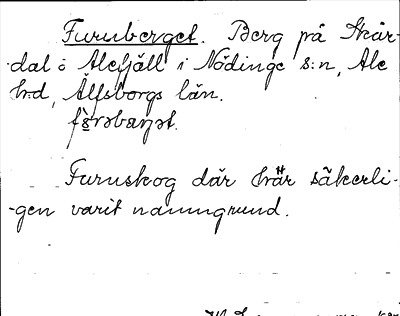 Furuberget. Berg på Skår-
dal ö Alefjäll i Nödinge s:n, Ale
h:d, Älfsborgs län.
Furuskog där här säkerli-
gen varit namngrund.